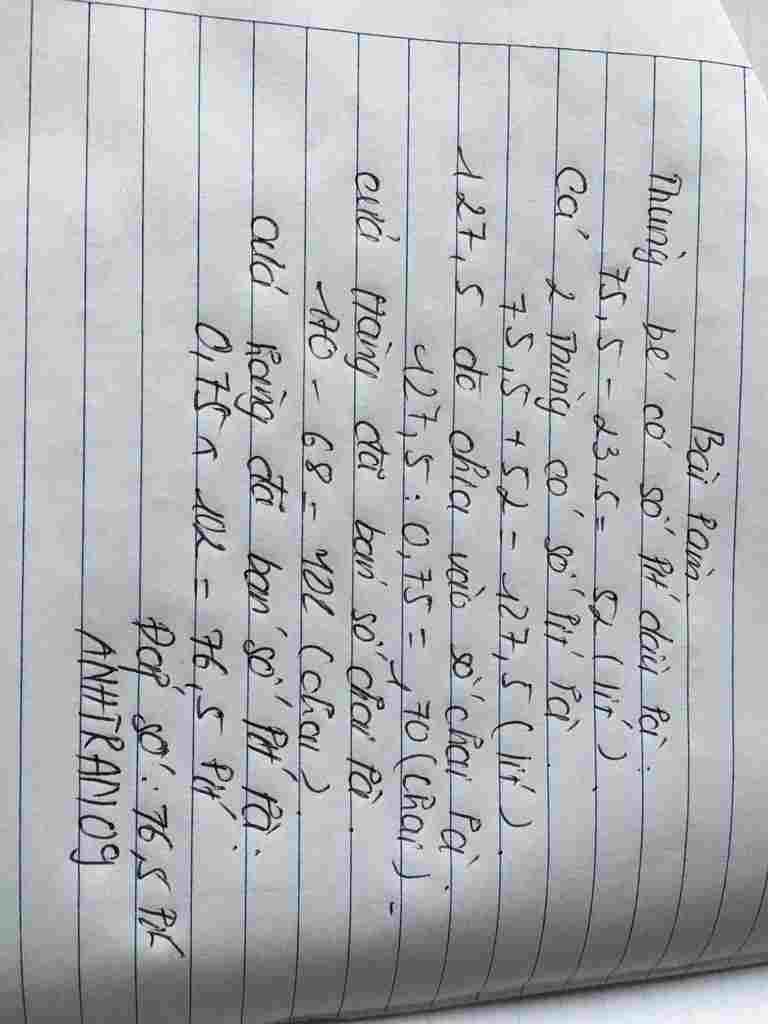 Bài làm
Thùng bé có số lít dầu là :
75,5 - 23,5 = 52 (lít)
Cả 2 thùng có số lít là .
75,5 + 52 = 127,5 (lít) .
127,5 do chia vào số chai là .
127,5 : 0,75 = 170 (chai) -
cửa Hàng đã bán số chai là .
170 - 68 = 102 (chai)
cửa hàng đã bán số lít là :
0,75 x 102 = 76,5 lít
Đáp số : 76,5 lít
ANHTRAN09